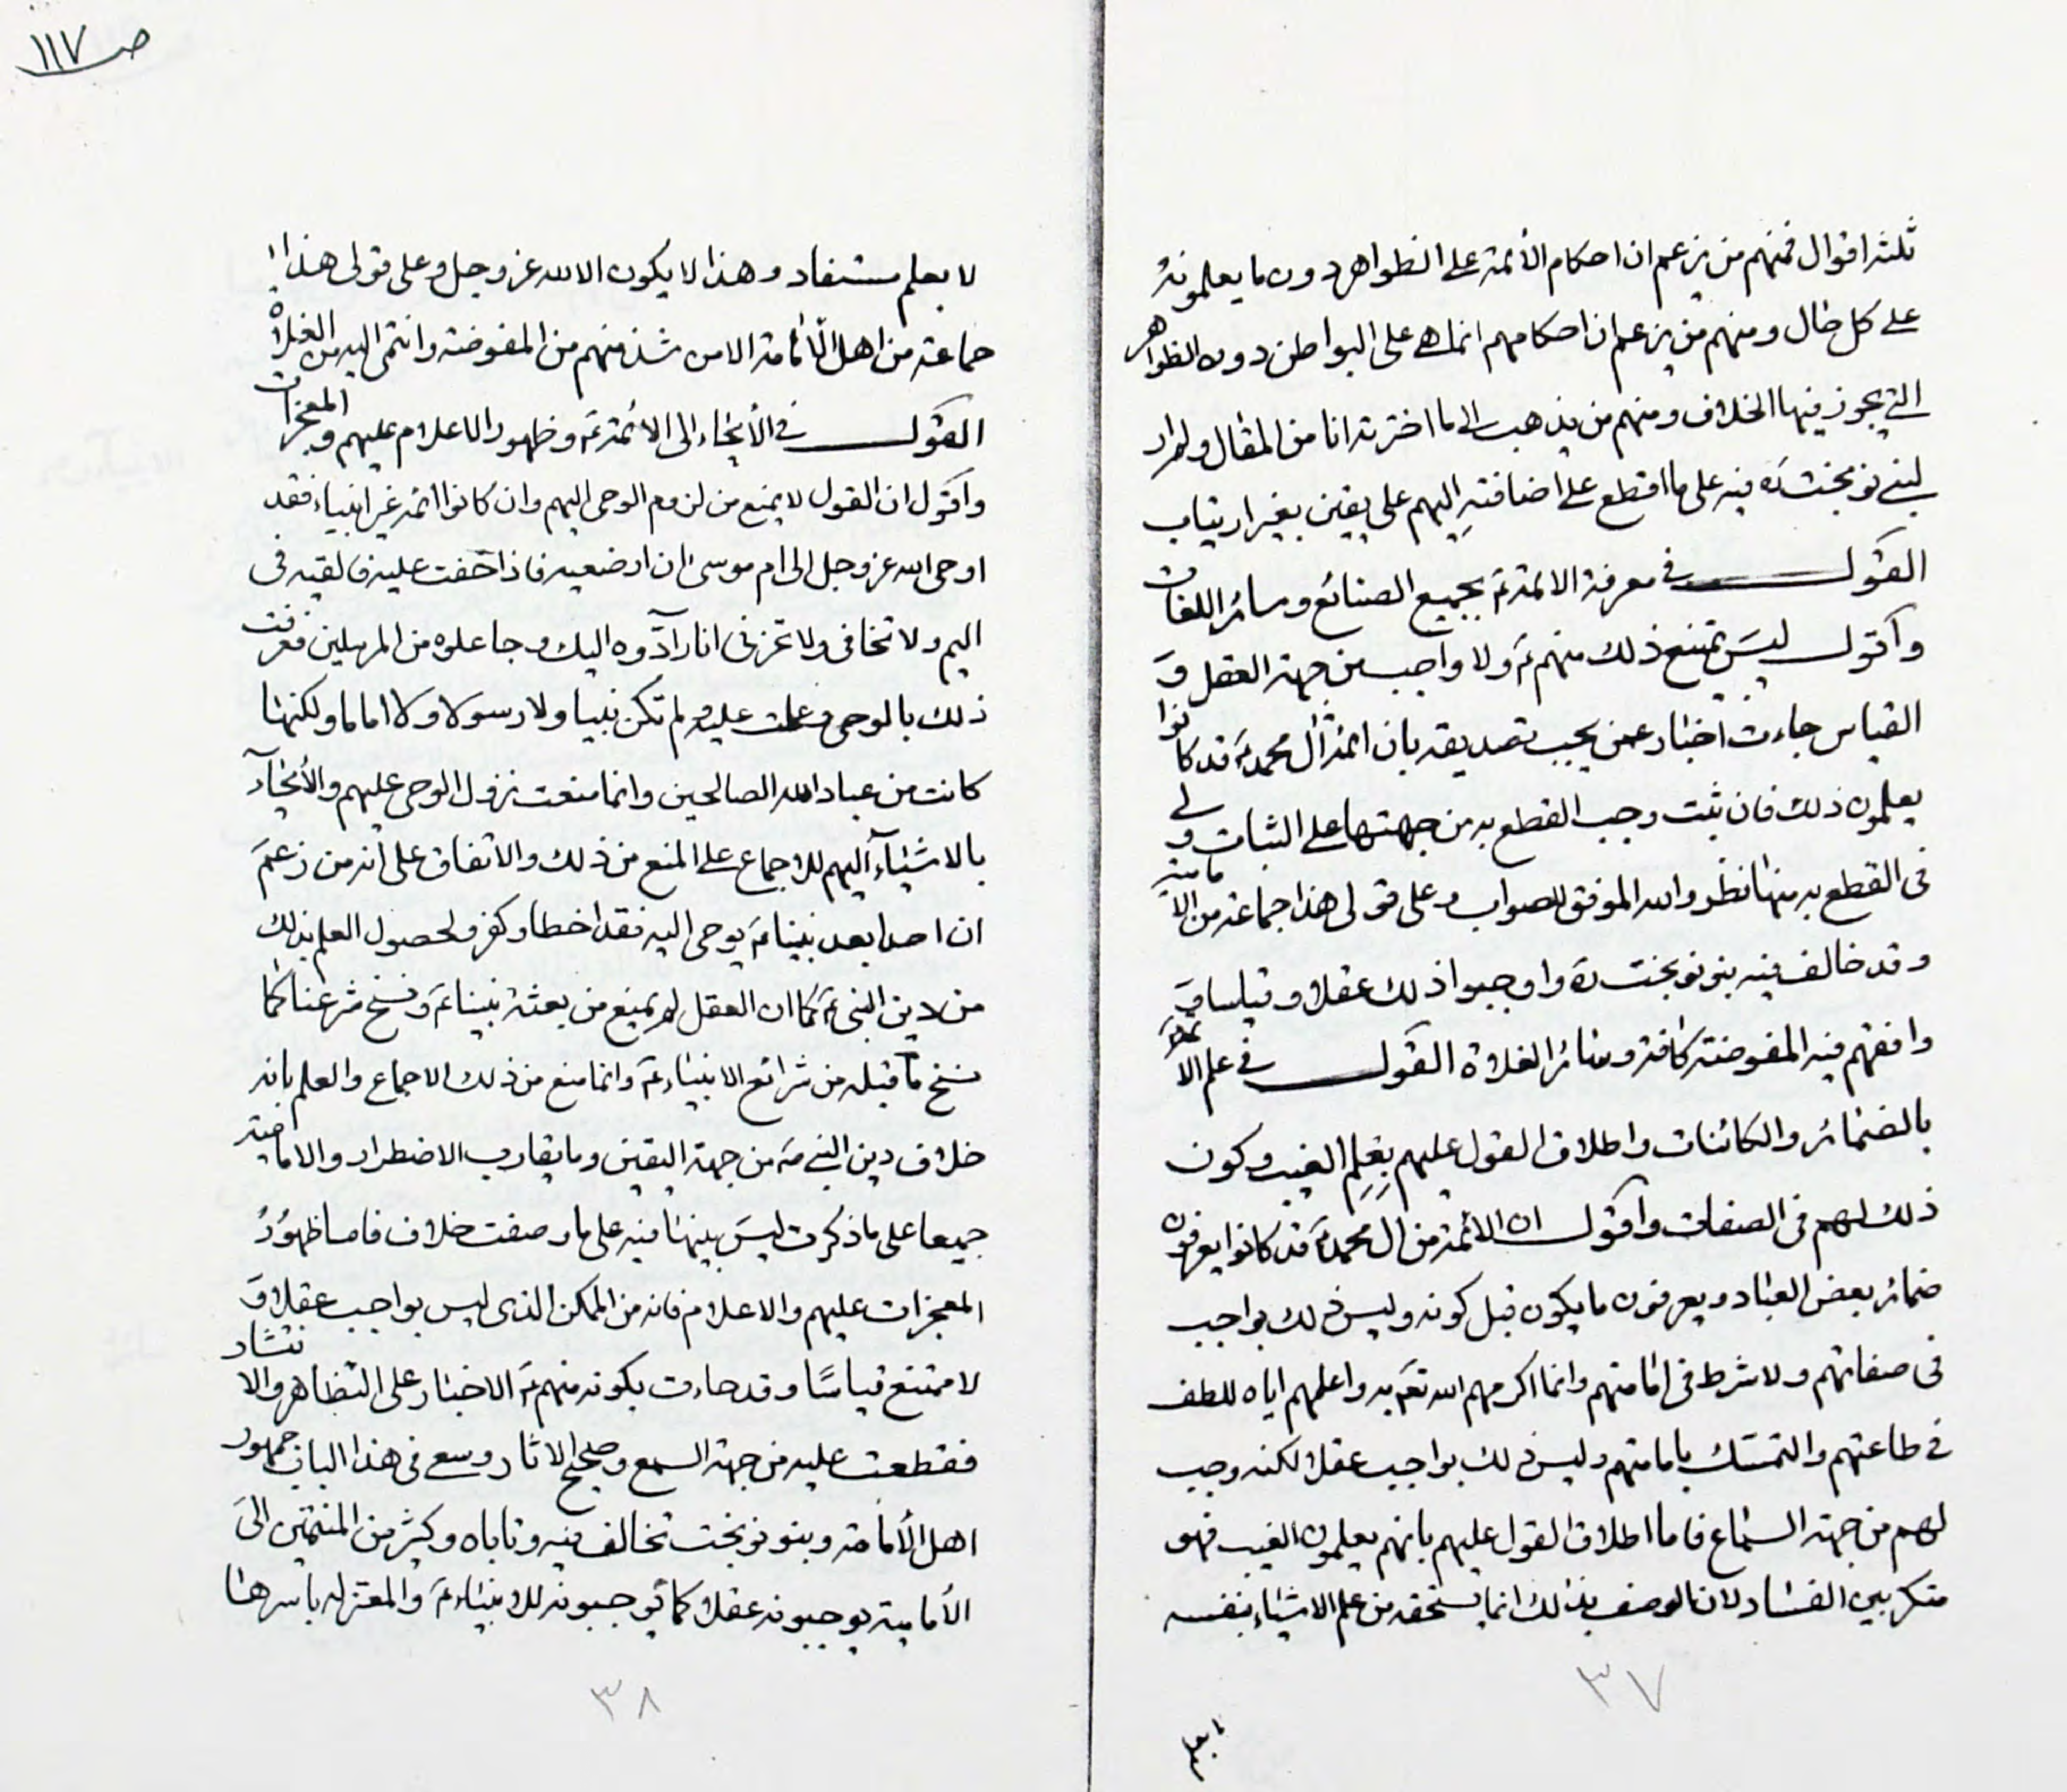 ثلثه اقوال فمنهم من يزعم ان احكام الأئمة على الظواهر دون ما يعلمونه
على كل حال ومنهم من يزعم ان احكامهم انما هى على البواطن دون الظواهر
التى يجوز فيها الخلاف ومنهم من يذهب الى ما اخترته انا من المقال ولم ار
لبنى نوبخت ره فيه على ما اقطع على اضافته اليهم على يقين بغير ارتياب
القول فى معرفة الائمة ع بجميع الصنائع وسائر اللغات
واقول ليس يمتنع ذلك منهم ع ولا واجب من جهة العقل و
القياس جاءت اخبار عمن يجب تصديقه بان ائمة ال محمد ع قد كانوا
يعلمون ذلك فان ثبت وجب القطع به من جهتها على الثبات ولى
فى القطع به منها نظر والله الموفق للصواب وعلى قولى هذا جماعة من الامامية
وقد خالف فيه بنو نوبخت ره واوجبوا ذلك عقلا وقياسا و
وافقهم فيه المفوضة كافة وسائر الغلاة القول فى علم الائمة
بالضمائر والكائنات واطلاق القول عليهم بعلم الغيب وكون
ذلك لهم فى الصفات واقول ان الائمة من ال محمد ع قد كانوا يعرفون
ضمائر بعض العباد ويعرفون ما يكون قبل كونه وليس ذلك بواجب
فى صفاتهم ولا شرط فى امامتهم وانما اكرمهم الله تعه به واعلمهم اياه للطف
فى طاعتهم والتمسك بامامتهم وليس ذلك بواجب عقلا لكنه وجب
لهم من جهة السماع فاما اطلاق القول عليهم بانهم يعلمون الغيب فهو
منكر بين الفساد لان الوصف بذلك انما يستحقه من علم الاشياء بنفسه
٣٧
ص ١١٧
لا بعلم مستفاد وهذا لا يكون الا لله عز وجل وعلى قولى هذا
جماعة من اهل الامامة الا من شذ منهم من المفوضة وانتمى اليه من الغلاة
القول فى الأيحاء الى الائمة ع وظهور الاعلام عليهم والمعجزات
واقول ان القول لا يمنع من لزوم الوحى اليهم وان كانوا ائمة غير انبياء فقد
اوحى الله عز وجل الى ام موسى ان ارضعيه فاذا خفت عليه فالقيه فى
اليم ولا تخافى ولا تحزنى انا رآدوه اليك وجاعلوه من المرسلين فعرفت
ذلك بالوحى وعملت عليه ولم تكن نبيا ولا رسولا ولا اماما ولكنها
كانت من عباد الله الصالحين وانما منعت نزول الوحى عليهم والأيحآء
بالاشيآء اليهم للاجماع على المنع من ذلك والاتفاق على انه من زعم
ان احدا بعد نبينا ع يوحى اليه فقد اخطا وكفر ولحصول العلم بذلك
من دين النبى ع كما ان العقل لم يمنع من بعثة نبينا ع ونسخ شرعنا كما
نسخ ما قبله من شرائع الانبياء ع وانما منع من ذلك الاجماع والعلم بانه
خلاف دين النبى ص من جهة اليقين وما يقارب الاضطرار والامامية
جميعا على ما ذكرت ليس بينها فيه على ما وصفت خلاف فاما ظهور
المعجزات عليهم والاعلام فانه من الممكن الذى ليس بواجب عقلا و
لا ممتنع قياسا وقد جاءت بكونه منهم ع الاخبار على التظاهر والانتشار
فقطعت عليه من جهة السمع وصحيح الاثار ومعى فى هذا الباب جمهور
اهل الأمامة وبنو نوبخت تخالف فيه وتاباه وكثير من المنتمين الى
الأمامية يوجبونه عقلا كما يوجبونه للانبياء ع والمعتزلة باسرها
٣٨